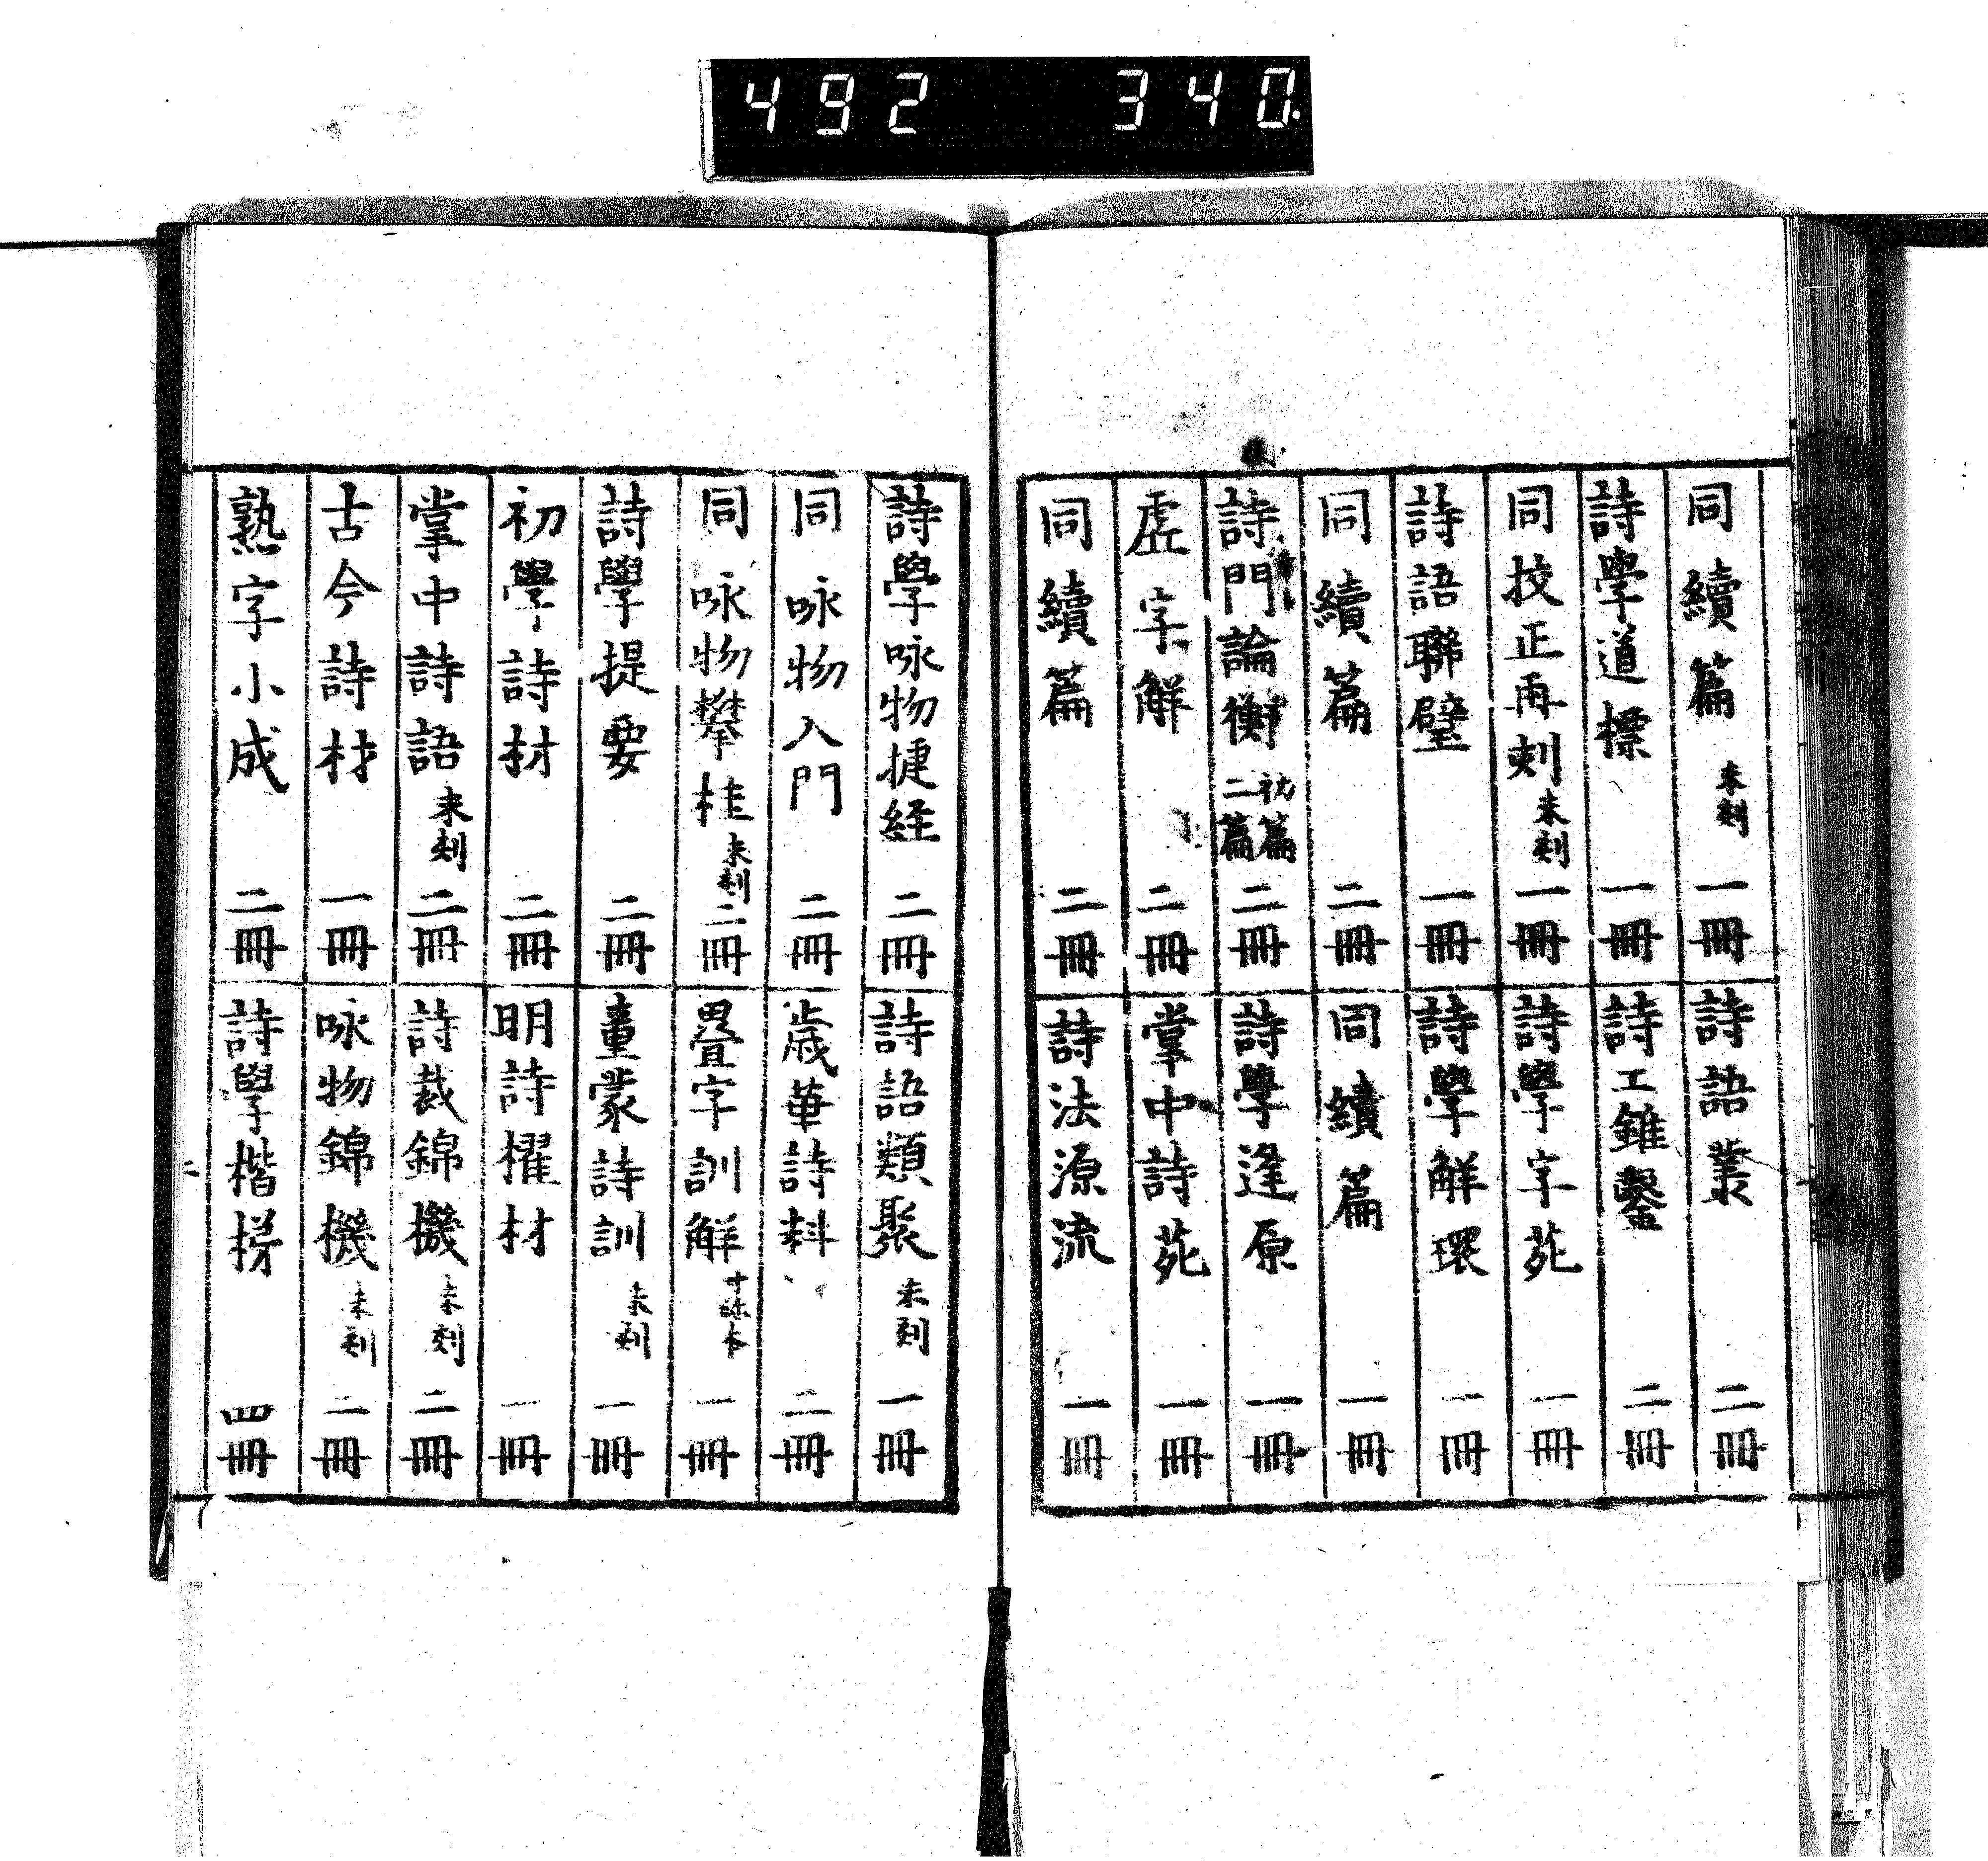 492 340.
同續篇 未刻 一冊
詩語叢 二冊
詩學道標 一冊
詩工錐鑿 二冊
同挍正再刻 未刻 一冊
詩學字苑 一冊
詩語聯璧 一冊
詩學解環 一冊
同續篇 二冊
同續篇 一冊
詩門論衡 初篇 二篇 二冊
詩學逢原 一冊
虛字解 二冊
掌中詩苑 一冊
同續篇 二冊
詩法源流 一冊
詩學咏物捷経 二冊
詩語類聚 未刻 一冊
同咏物入門 二冊
歳華詩料 二冊
同咏物攀桂 未刻 二冊
疊字訓解 寸珎本 一冊
詩學提要 二冊
童蒙詩訓 未刻 一冊
初學詩材 二冊
明詩櫂材 一冊
掌中詩語 未刻 二冊
詩裁錦機 未刻 二冊
古今詩材 一冊
咏物錦機 未刻 二冊
熟字小成 二冊
詩學楷梯 四冊